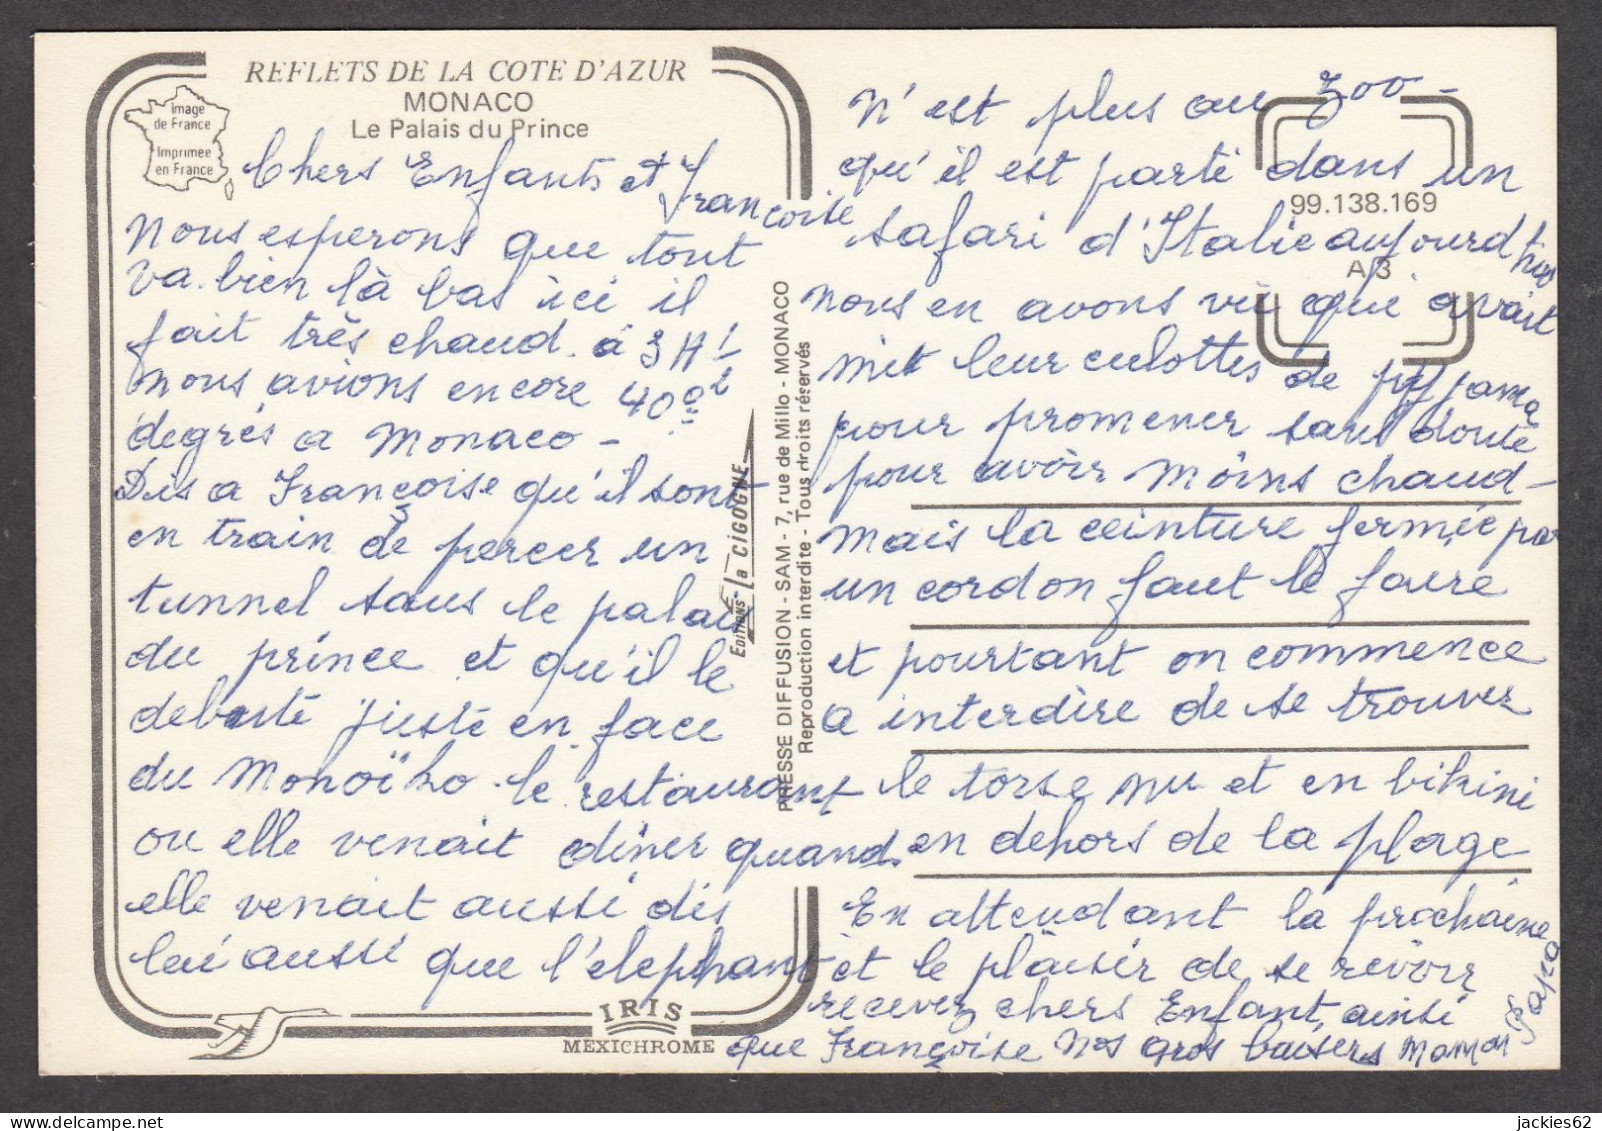 REFLETS DE LA COTE D'AZUR
MONACO
Le Palais du Prince
Image
de France
Imprimée
en France
Chers Enfants et Françoise
Nous esperons que tout
va bien là bas ici il
fait très chaud à 3 H 1/2
nous avions encore 40°
degrés a Monaco -
Dis a Françoise qu'il sont
en train de percer un
tunnel sous le palais
du prince et qu'il le
debuté juste en face
du Monoïko le restaurant
ou elle venait diner quand
elle venait aussi dis
lui aussi que l'elephant
IRIS
MEXICHROME
Editions "la CIGOGNE"
PRESSE DIFFUSION - SAM - 7, rue de Millo - MONACO
Reproduction interdite - Tous droits réservés
99.138.169
A 3
N'est plus au Zoo -
qu'il est parti dans un
safari d'Italie aujourd hui
nous en avons vu qui avait
mit leur culottes de pyjama
pour promener sans doute
pour avoir moins chaud -
mais la ceinture fermée par
un cordon faut le faire
et pourtant on commence
a interdire de se trouver
le torse nu et en bikini
en dehors de la plage
En attendant la prochaine
et le plaisir de se revoir
recevez chers Enfant, ainsi
que Françoise Nos gros baisers Maman
Papa
jackies62